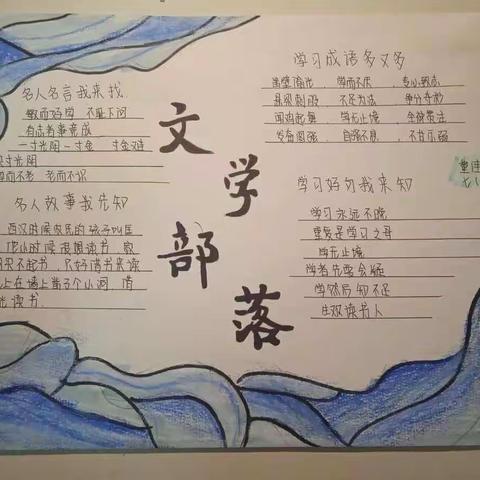 名人名言我来找
敏而好学 不耻下问
有志者事竟成
一寸光阴一寸金 寸金难
买寸光阴
学而不老 老而不识
名人故事我先知
西汉时候农民的孩子叫匡
他小时候很想读书
因买不起书,只好借书来读
上在墙上凿了个小洞,借
光读书.
文学部落
学习成语多又多
凿壁借光、学而不厌、专心致志
悬梁刺股、不足为法、争分夺秒
闻鸡起舞、学无止境、全神贯注
发奋图强、自强不息、不甘示弱
学习好句我来知
学习永远不晚
重复是学习之母
学无止境
学者先要会疑
学然后知不足